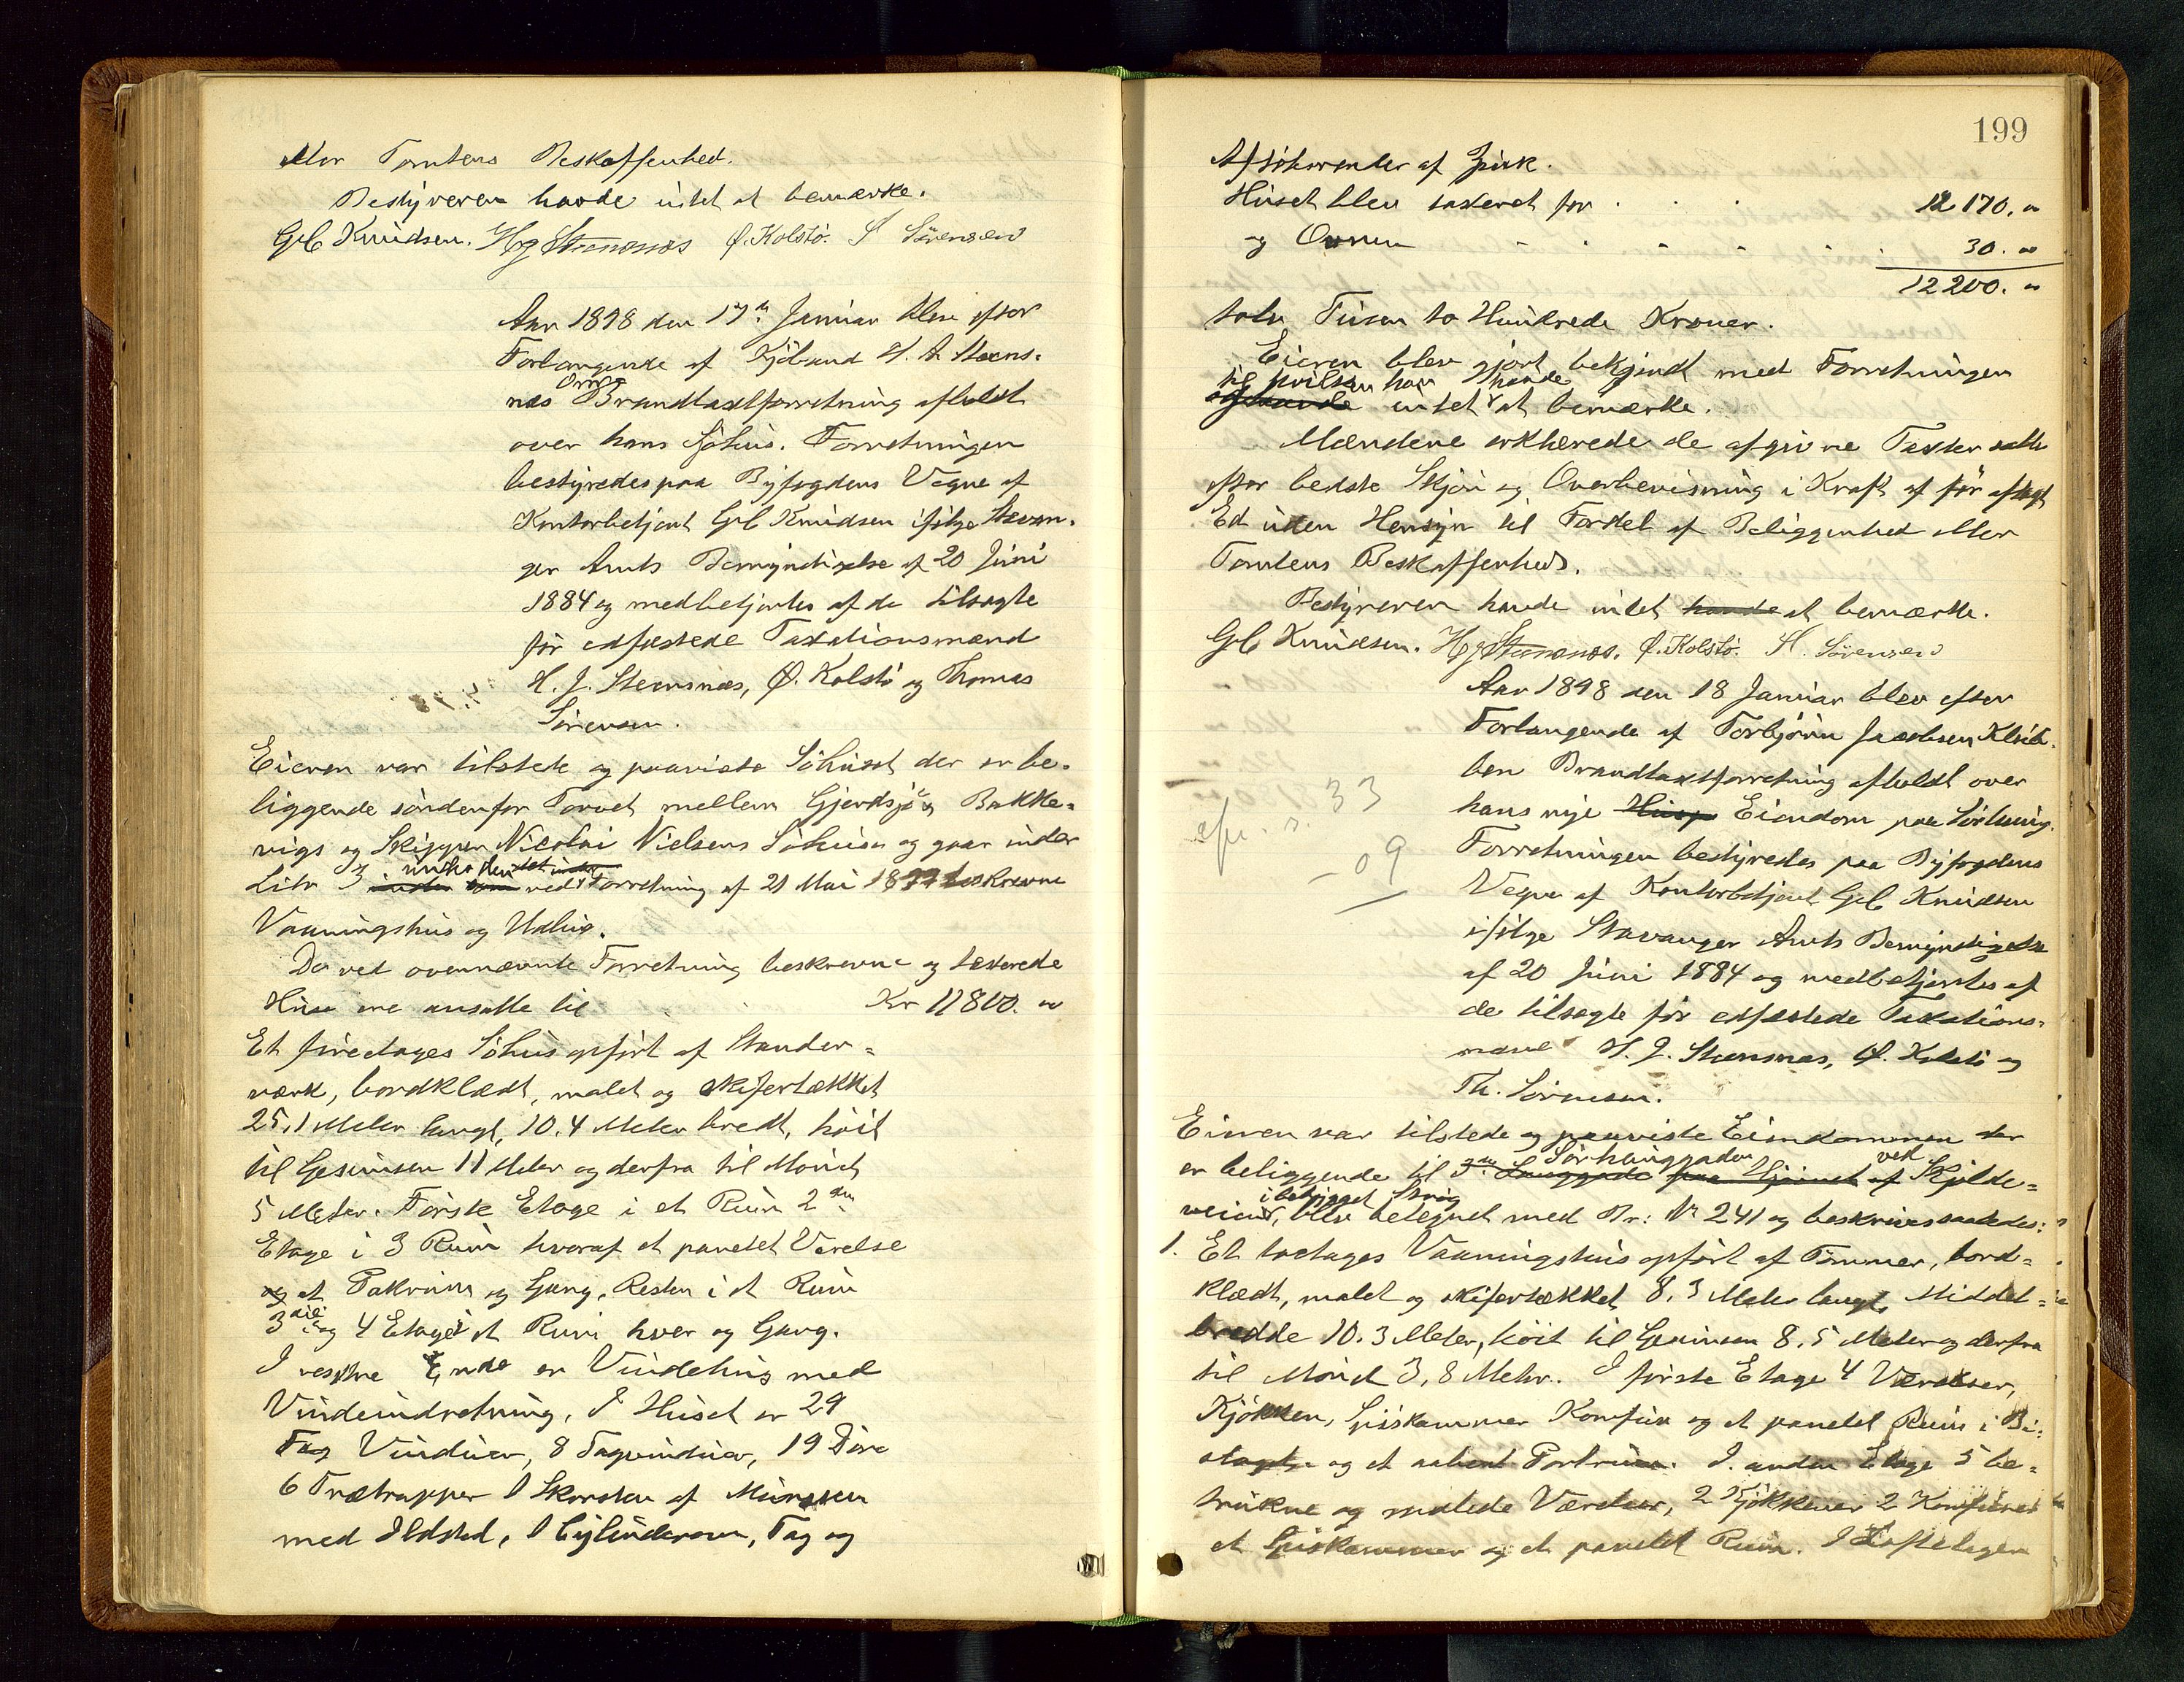 eller Tomtens Beskaffenhed.
Bestyreren havde intet at bemærke.
Gvl Knudsen. H J Stensnæs Ø. Kolstø. T Sørensen
Aar 1898 den 17de Januar blev efter
Forlangende af Kjøbmd H. A. Steens-
næs Om Brandtaxtforretning afholdt
over hans Søhus. Forretningen
bestyredes paa Byfogdens Vegne af
Kontorbetjent Gvl Knudsen ifølge Stavan-
ger Amts Bemyndigelse af 20 Juni
1884 og medbetjentes af de tilsagte
før edfæstede Taxationsmænd
H. J. Steensnæs, Ø. Kolstø og Thomas
Sørensen.
Eieren var tilstede og paaviste Søhuset der er be-
liggende søndenfor Torvet mellem Gjerdsjø & Bakke-
vigs og Skipper Nicolai Nielsens Søhuse og gaar under
Litr 3 under den ved Forretning af 21 Mai 1877 beskrevne
Vaaningshus og Udhus.
De ved ovennævnte Forretning beskrevne og taxerede
Huse ere ansatte til Kr 11800. "
Et firetages Søhus opført af Stander-
værk, bordklædt, malet og skifertækket
25,1 Meter langt, 10.4 Meter bredt, høit
til Gesimsen 11 Meter og derfra til Mønet
5 Meter. Første Etage i et Rum 2den
Etage i 3 Rum hvoraf et panelet Værelse
og et Pakrum og Gang. Resten i et Rum
3die og 4 Etage i et Rum hver og Gang.
I vestre Ende er Vindehus med
Vindeindretning. I Huset er 29
Fag Vinduer, 8 Tagvinduer, 19 Døre
6 Trætrapper 1 Skorsten af Mursten
med Ildsted, 1 Cylinderovn, Tag og
199
Afløbsrender af Zink.
Huset blev taxeret for 12 170. "
og Ovnen 30. "
12200. "
tolv Tusen to Hundrede Kroner.
Eieren blev gjort bekjendt med Forretningen
til hvilken han havde
og havde intet at bemærke.
Mændene erklærede de afgivne Taxter satte
efter bedste Skjøn og Overbevisning i Kraft af før aflagt
Ed uden Hensyn til Fordel af Beliggenhed eller
Tomtens Beskaffenhed.
Bestyreren havde intet havde at bemærke.
Gvl Knudsen. H J Stensnæs. Ø. Kolstø. T. Sørensen
Aar 1898 den 18 Januar blev efter
Forlangende af Torbjørn Jacobsen
Brandtaxtforretning afholdt over
hans nye Eiendom paa Sørhaug.
33
09
Forretningen bestyredes paa Byfogdens
Vegne af Kontorbetjent Gvl Knudsen
ifølge Stavanger Amts Bemyndigelse
af 20 Juni 1884 og medbetjentes af
de tilsagte før edfæstede Taxations-
mænd H. J. Steensnæs, Ø. Kolstø og
Th. Sørensen.
Eieren var tilstede og paaviste Eiendommen der
Sørhauggaden ved
er beliggende til 3die Langgade paa Hjørnet af Skjolde-
i bebygget Strøg
veien, blev betegnet med Br: Nr 241 og beskrives saaledes:
1. Et toetages Vaaningshus opført af Tømmer, bord-
klædt, malet og skifertækket 8,3 Meter langt, Middel-
bredde 10.3 Meter, høit til Gesimsen 8,5 Meter og derfra
til Mønet 3,8 Meter. I første Etage 4 Værelser,
Kjøkken, Spiskammer Komfur og et panelet Rum i Bi-
slaget og et aabent Portrum. I anden Etage 5 be-
trukne og malede Værelser, 2 Kjøkkener 2 Komfurer
et Spiskammer og et panelet Rum. I Loftetagen